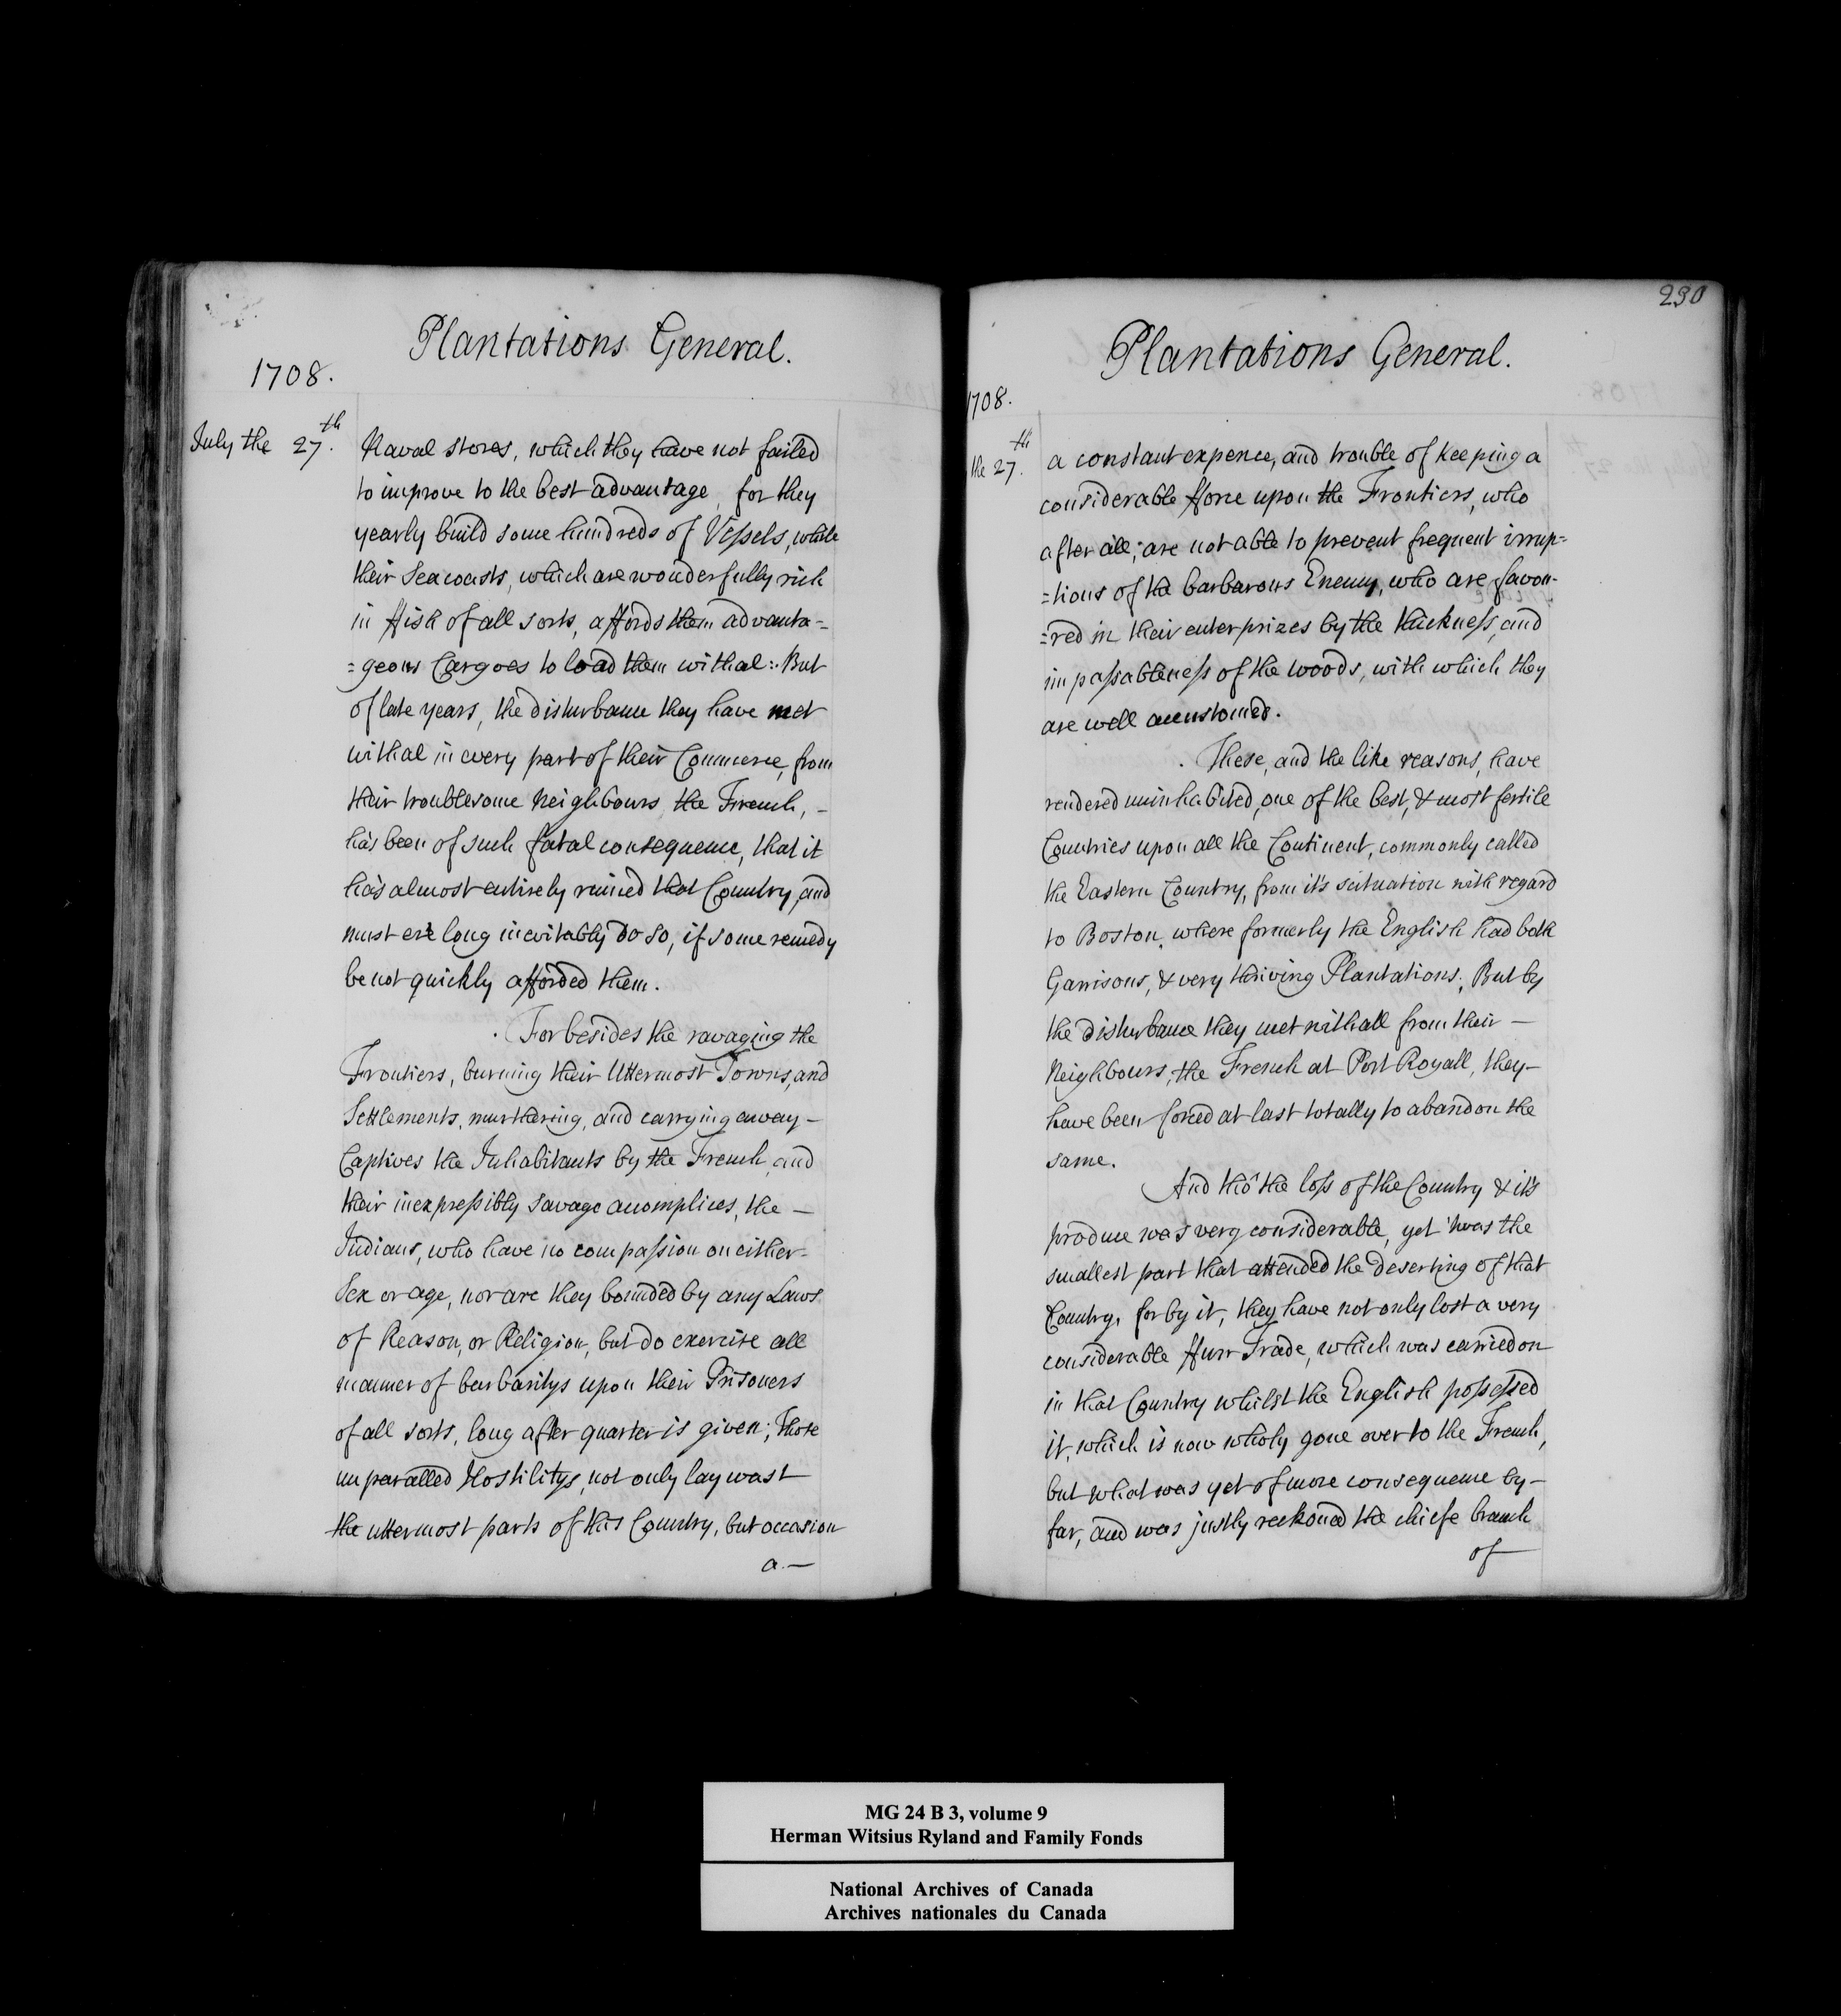 Plantations General.
1708.
July the 27.th
Naval stores, which they have not failed
to improve to the best advantage, for they
yearly build some hundreds of Vessels, while
their Seacoasts, which are wonderfully rich
in ffish of all sorts, affords them advanta=
=geous Cargoes to load them withal: But
of late years, the disturbance they have met
withal in every part of their Commerce, from
their troublesome Neighbours, the French, -
has been of such fatal consequence, that it
has almost entirely ruined that Country, and
must ere long inevitably do so, if some remedy
be not quickly afforded them.
For besides the ravaging the
Frontiers, burning their Uttermost Towns, and
Settlements, murthering, and carrying away -
Captives the Inhabitants by the French, and
their inexpressibly savage accomplices, the -
Indians, who have no compassion on either
Sex or age, nor are they bounded by any Laws
of Reason, or Religion, but do exercise all
manner of barbaritys upon their Prisoners
of all sorts, long after quarter is given; Those
unparalled Hostilitys, not only lay wast
the uttermost parts of this Country, but occasion
a -
230
Plantations General.
1708.
the 27.th
a constant expence, and trouble of keeping a
considerable fforce upon the Frontiers, who
after all, are not able to prevent frequent irrup=
=tions of the barbarous Enemy, who are favou-
=red in their enterprizes by the thickness, and
impassableness of the woods, with which they
are well accustomed.
These, and the like reasons, have
rendered uninhabited, one of the best, & most fertile
Countries upon all the Continent, commonly called
the Eastern Country, from it's scituation with regard
to Boston, where formerly the English had both
Garrisons, & very thriving Plantations; But by
the disturbance they met withall from their -
Neighbours, the French at Port Royall, they -
have been forced at last totally to abandon the
same.
And tho' the loss of the Country & it's
produce was very considerable, yet 'twas the
smallest part that attended the deserting of that
Country, for by it, they have not only lost a very
considerable ffurr Trade, which was carried on
in that Country whilst the English possessed
it, which is now wholy gone over to the French,
but what was yet of more consequence by -
far, and was justly reckoned the chiefe branch
of
MG 24 B 3, volume 9
Herman Witsius Ryland and Family Fonds
National Archives of Canada
Archives nationales du Canada